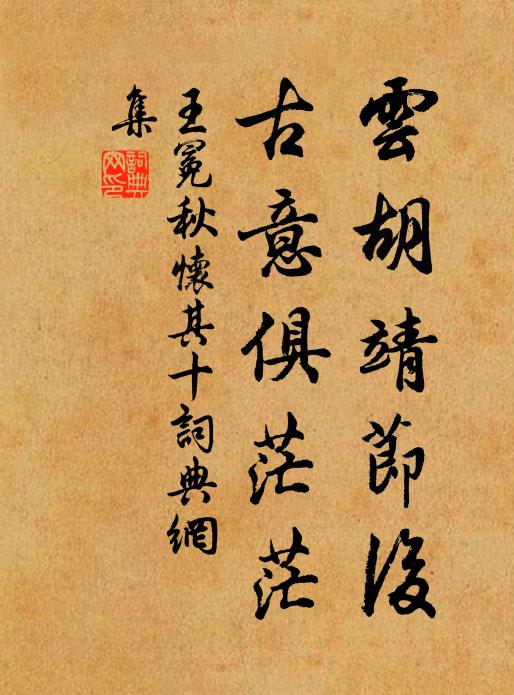 雲胡靖節後
古意俱茫茫
王冕秋懷其十詞典網
集
詞典
网印